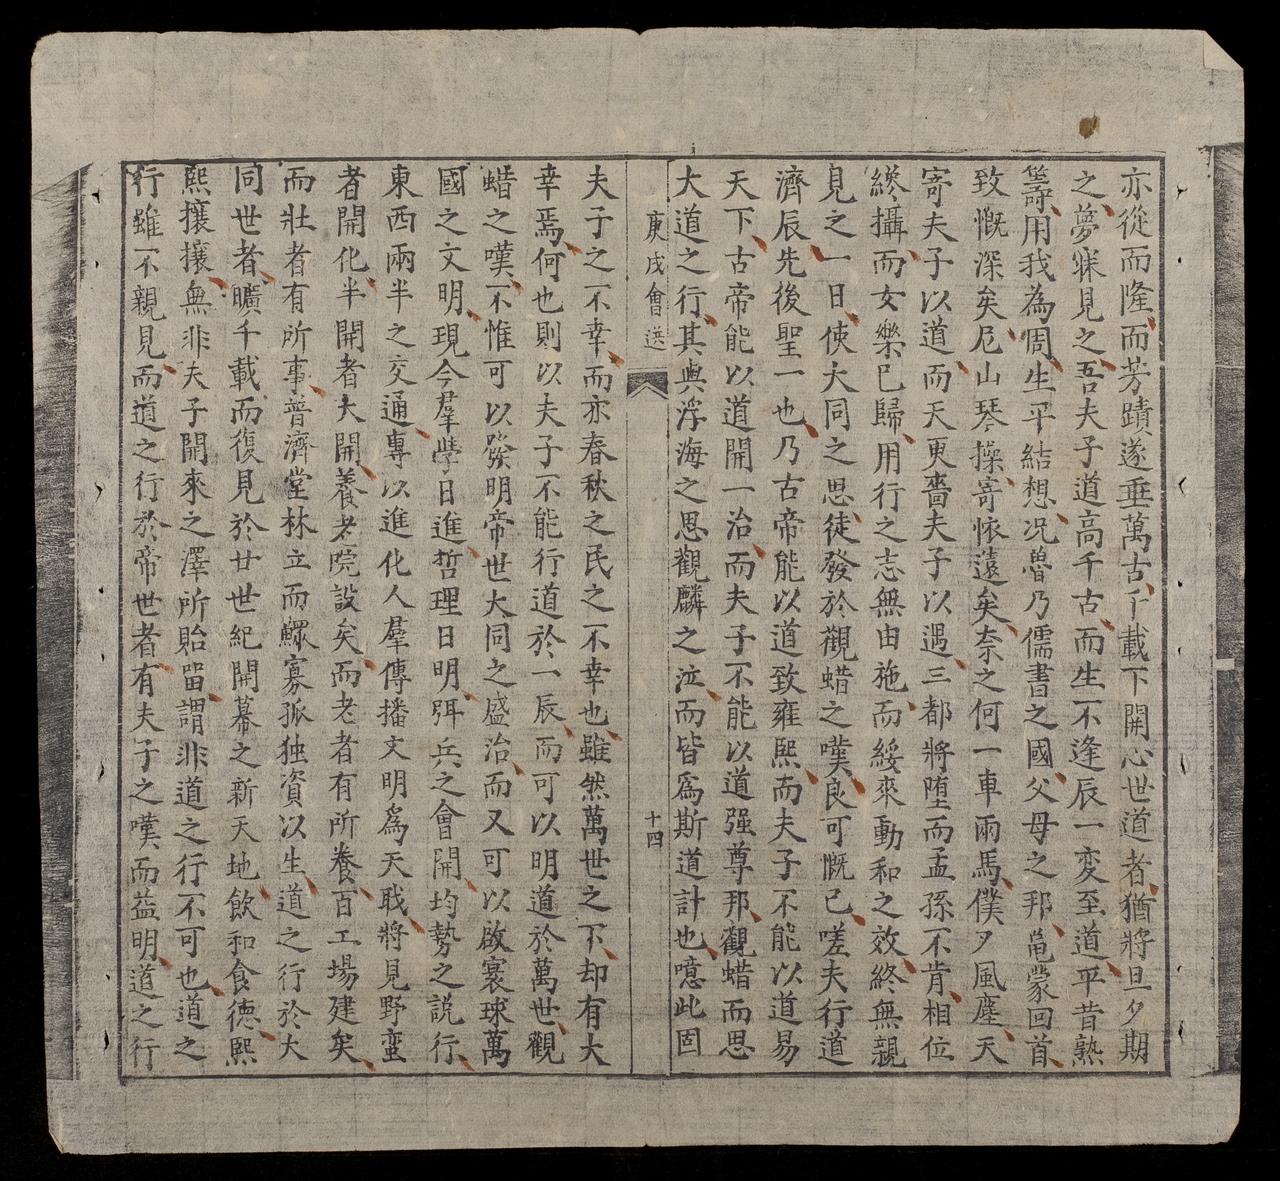 亦從而隆而芳蹟遂垂萬古千載下開心世道者猶將旦夕期
之夢寐見之吾夫子道高千古而生不逢辰一変至道平昔熟
籌用我為周生平結想况魯乃儒書之國父母之邦龜蒙回首
致慨深矣尼山琴操寄懷遠矣奈之何一車兩馬僕夕風塵天
寄夫子以道而天更嗇夫子以遇三都將墮而孟孫不肯相位
纔攝而女樂已歸用行之志無由施而綏來動和之效終無親
見之一日使大同之思徒發於觀蜡之嘆良可慨已嗟夫行道
濟辰先後聖一也乃古帝能以道致雍熙而夫子不能以道易
天下古帝能以道開一治而夫子不能以道强尊邦觀蜡而思
大道之行其與浮海之思觀麟之泣而皆爲斯道計也噫此固
庚戌會选
十四
夫子之不幸而亦春秋之民之不幸也雖然萬世之下却有大
幸焉何也則以夫子不能行道於一辰而可以明道於萬世觀
蜡之嘆不惟可以發明帝世大同之盛治而又可以啟寰球萬
國之文明現今羣學日進哲理日明弭兵之會開均勢之説行
東西兩半之交通專以進化人羣傳播文明爲天戢將見野蛮
者開化半開者大開養老院設矣而老者有所養百工場建矣
而壯者有所事普濟堂林立而鰥寡孤独資以生道之行於大
同世者曠千載而復見於廿世紀開幕之新天地飲和食德熙
熙攘攘無非夫子開來之澤所貽畱謂非道之行不可也道之
行雖不親見而道之行於帝世者有夫子之嘆而益明道之行